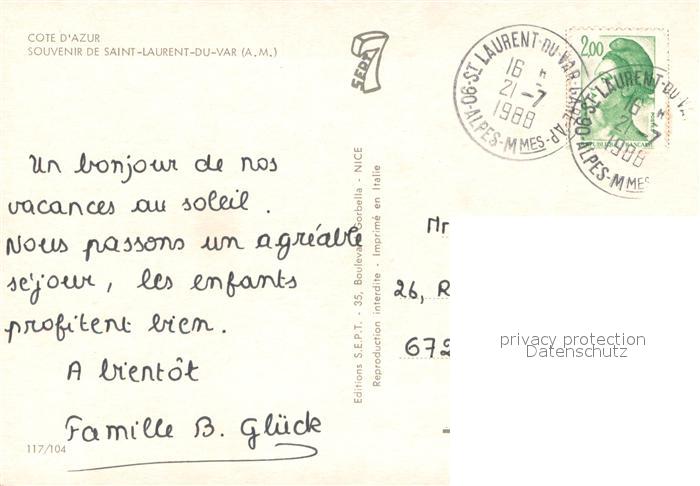 COTE D'AZUR
SOUVENIR DE SAINT-LAURENT-DU-VAR (A.M.)
SEPT
06-ST LAURENT-DU-VAR-GARE-AP
ALPES-MMES
16 H
21-7
1988
2,00
REPUBLIQUE FRANCAISE
06-ST LAURENT-DU-VA
ALPES-MMES
16 H
21-7
1988
Un bonjour de nos
vacances au soleil.
Nous passons un agréable
séjour, les enfants
profitent bien.
A bientôt
Famille B. Glück
117/104
Editions S.E.P.T. - 35, Boulevard Gorbella - NICE
Reproduction interdite - Imprimé en Italie
Mr
26, R
672
privacy protection
Datenschutz